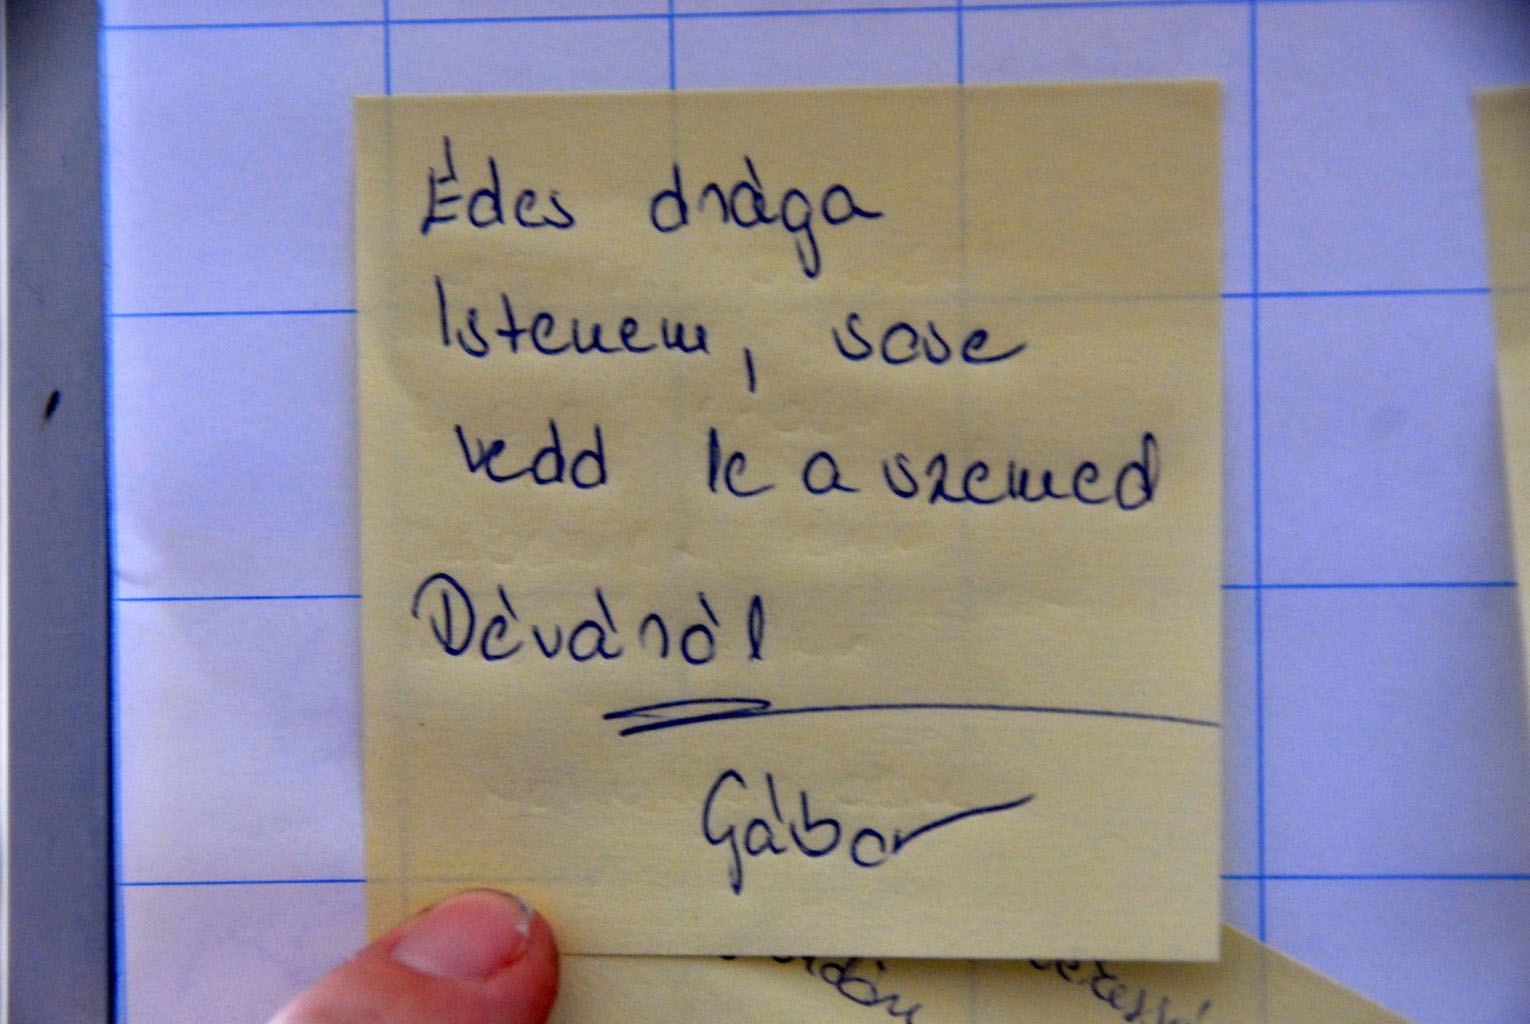 Édes drága
Istenem, sose
vedd le a szemed
Déváról
Gábor